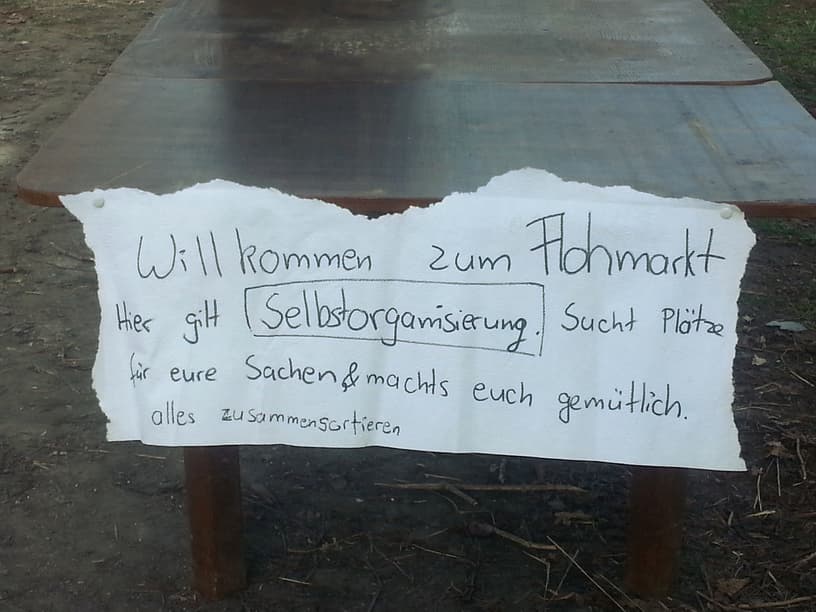 Willkommen zum Flohmarkt
Hier gilt Selbstorganisierung. Sucht Plätze
für eure Sachen & machts euch gemütlich.
alles zusammensortieren